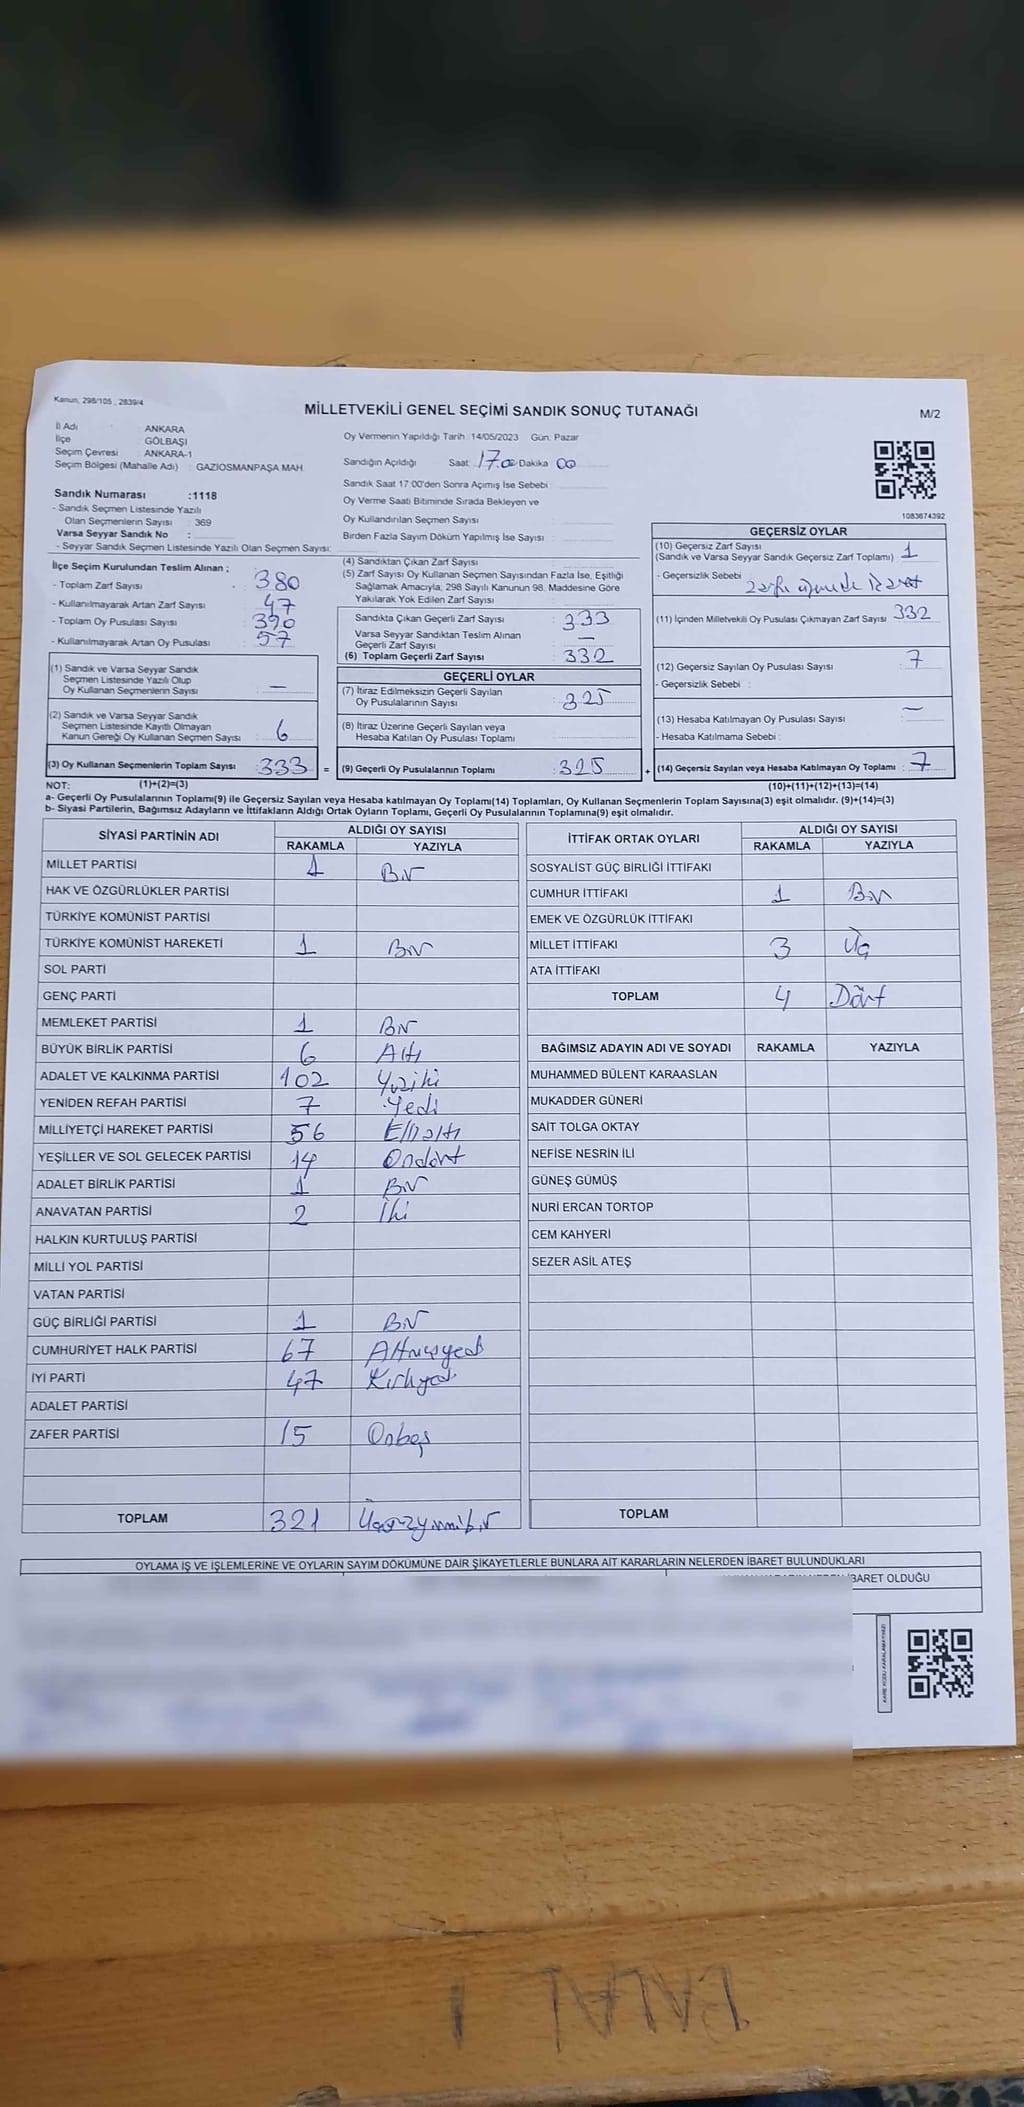 Kanun, 298/105 , 2839/4
MİLLETVEKİLİ GENEL SEÇİMİ SANDIK SONUÇ TUTANAĞI
M/2
İl Adı : ANKARA
İlçe : GÖLBAŞI
Seçim Çevresi : ANKARA-1
Seçim Bölgesi (Mahalle Adı) : GAZİOSMANPAŞA MAH.
Sandık Numarası :1118
- Sandık Seçmen Listesinde Yazılı
Olan Seçmenlerin Sayısı : 369
Varsa Seyyar Sandık No :
- Seyyar Sandık Seçmen Listesinde Yazılı Olan Seçmen Sayısı:
Oy Vermenin Yapıldığı Tarih : 14/05/2023 Gün. Pazar
Sandığın Açıldığı Saat: 17.00 Dakika 00
Sandık Saat 17:00'den Sonra Açımış İse Sebebi :
Oy Verme Saati Bitiminde Sırada Bekleyen ve
Oy Kullandırılan Seçmen Sayısı :
Birden Fazla Sayım Döküm Yapılmış İse Sayısı :
1083674392
İlçe Seçim Kurulundan Teslim Alınan ;
- Toplam Zarf Sayısı : 380
- Kullanılmayarak Artan Zarf Sayısı : 47
- Toplam Oy Pusulası Sayısı : 390
- Kullanılmayarak Artan Oy Pusulası : 57
(1) Sandık ve Varsa Seyyar Sandık
Seçmen Listesinde Yazılı Olup
Oy Kullanan Seçmenlerin Sayısı : —
(2) Sandık ve Varsa Seyyar Sandık
Seçmen Listesinde Kayıtlı Olmayan
Kanun Gereği Oy Kullanan Seçmen Sayısı : 6
(3) Oy Kullanan Seçmenlerin Toplam Sayısı : 333 =
(1)+(2)=(3)
(4) Sandıktan Çıkan Zarf Sayısı :
(5) Zarf Sayısı Oy Kullanan Seçmen Sayısından Fazla İse, Eşitliği
Sağlamak Amacıyla, 298 Sayılı Kanunun 98. Maddesine Göre
Yakılarak Yok Edilen Zarf Sayısı :
Sandıkta Çıkan Geçerli Zarf Sayısı : 333
Varsa Seyyar Sandıktan Teslim Alınan
Geçerli Zarf Sayısı : —
(6) Toplam Geçerli Zarf Sayısı : 332
GEÇERLİ OYLAR
(7) İtiraz Edilmeksizin Geçerli Sayılan
Oy Pusulalarının Sayısı : 325
(8) İtiraz Üzerine Geçerli Sayılan veya
Hesaba Katılan Oy Pusulası Toplamı :
(9) Geçerli Oy Pusulalarının Toplamı : 325 +
GEÇERSİZ OYLAR
(10) Geçersiz Zarf Sayısı
(Sandık ve Varsa Seyyar Sandık Geçersiz Zarf Toplamı) : 1
- Geçersizlik Sebebi :
(11) İçinden Milletvekili Oy Pusulası Çıkmayan Zarf Sayısı : 332
(12) Geçersiz Sayılan Oy Pusulası Sayısı : 7
- Geçersizlik Sebebi :
(13) Hesaba Katılmayan Oy Pusulası Sayısı : —
- Hesaba Katılmama Sebebi :
(14) Geçersiz Sayılan veya Hesaba Katılmayan Oy Toplamı : 7
(10)+(11)+(12)+(13)=(14)
NOT:
a- Geçerli Oy Pusulalarının Toplamı(9) ile Geçersiz Sayılan veya Hesaba katılmayan Oy Toplamı(14) Toplamları, Oy Kullanan Seçmenlerin Toplam Sayısına(3) eşit olmalıdır. (9)+(14)=(3)
b- Siyasi Partilerin, Bağımsız Adayların ve İttifakların Aldığı Ortak Oyların Toplamı, Geçerli Oy Pusulalarının Toplamına(9) eşit olmalıdır.
SİYASİ PARTİNİN ADI ALDIĞI OY SAYISI
RAKAMLA YAZIYLA
MİLLET PARTİSİ 1 Bir
HAK VE ÖZGÜRLÜKLER PARTİSİ
TÜRKİYE KOMÜNİST PARTİSİ
TÜRKİYE KOMÜNİST HAREKETİ 1 Bir
SOL PARTİ
GENÇ PARTİ
MEMLEKET PARTİSİ 1 Bir
BÜYÜK BİRLİK PARTİSİ 6 Altı
ADALET VE KALKINMA PARTİSİ 102 Yüziki
YENİDEN REFAH PARTİSİ 7 Yedi
MİLLİYETÇİ HAREKET PARTİSİ 56 Ellialtı
YEŞİLLER VE SOL GELECEK PARTİSİ 14 Ondört
ADALET BİRLİK PARTİSİ 1 Bir
ANAVATAN PARTİSİ 2 İki
HALKIN KURTULUŞ PARTİSİ
MİLLİ YOL PARTİSİ
VATAN PARTİSİ
GÜÇ BİRLİĞİ PARTİSİ 1 Bir
CUMHURİYET HALK PARTİSİ 67 Altmışyedi
İYİ PARTİ 47 Kırkyedi
ADALET PARTİSİ
ZAFER PARTİSİ 15 Onbeş
TOPLAM 321 Üçyüzyirmibir
İTTİFAK ORTAK OYLARI ALDIĞI OY SAYISI
RAKAMLA YAZIYLA
SOSYALİST GÜÇ BİRLİĞİ İTTİFAKI
CUMHUR İTTİFAKI 1 Bir
EMEK VE ÖZGÜRLÜK İTTİFAKI
MİLLET İTTİFAKI 3 Üç
ATA İTTİFAKI
TOPLAM 4 Dört
BAĞIMSIZ ADAYIN ADI VE SOYADI RAKAMLA YAZIYLA
MUHAMMED BÜLENT KARAASLAN
MUKADDER GÜNERİ
SAİT TOLGA OKTAY
NEFİSE NESRİN İLİ
GÜNEŞ GÜMÜŞ
NURİ ERCAN TORTOP
CEM KAHYERİ
SEZER ASİL ATEŞ
TOPLAM
OYLAMA İŞ VE İŞLEMLERİNE VE OYLARIN SAYIM DÖKÜMÜNE DAİR ŞİKAYETLERLE BUNLARA AİT KARARLARIN NELERDEN İBARET BULUNDUKLARI
İBARET OLDUĞU
KARE KODU KARALAMAYINIZ!